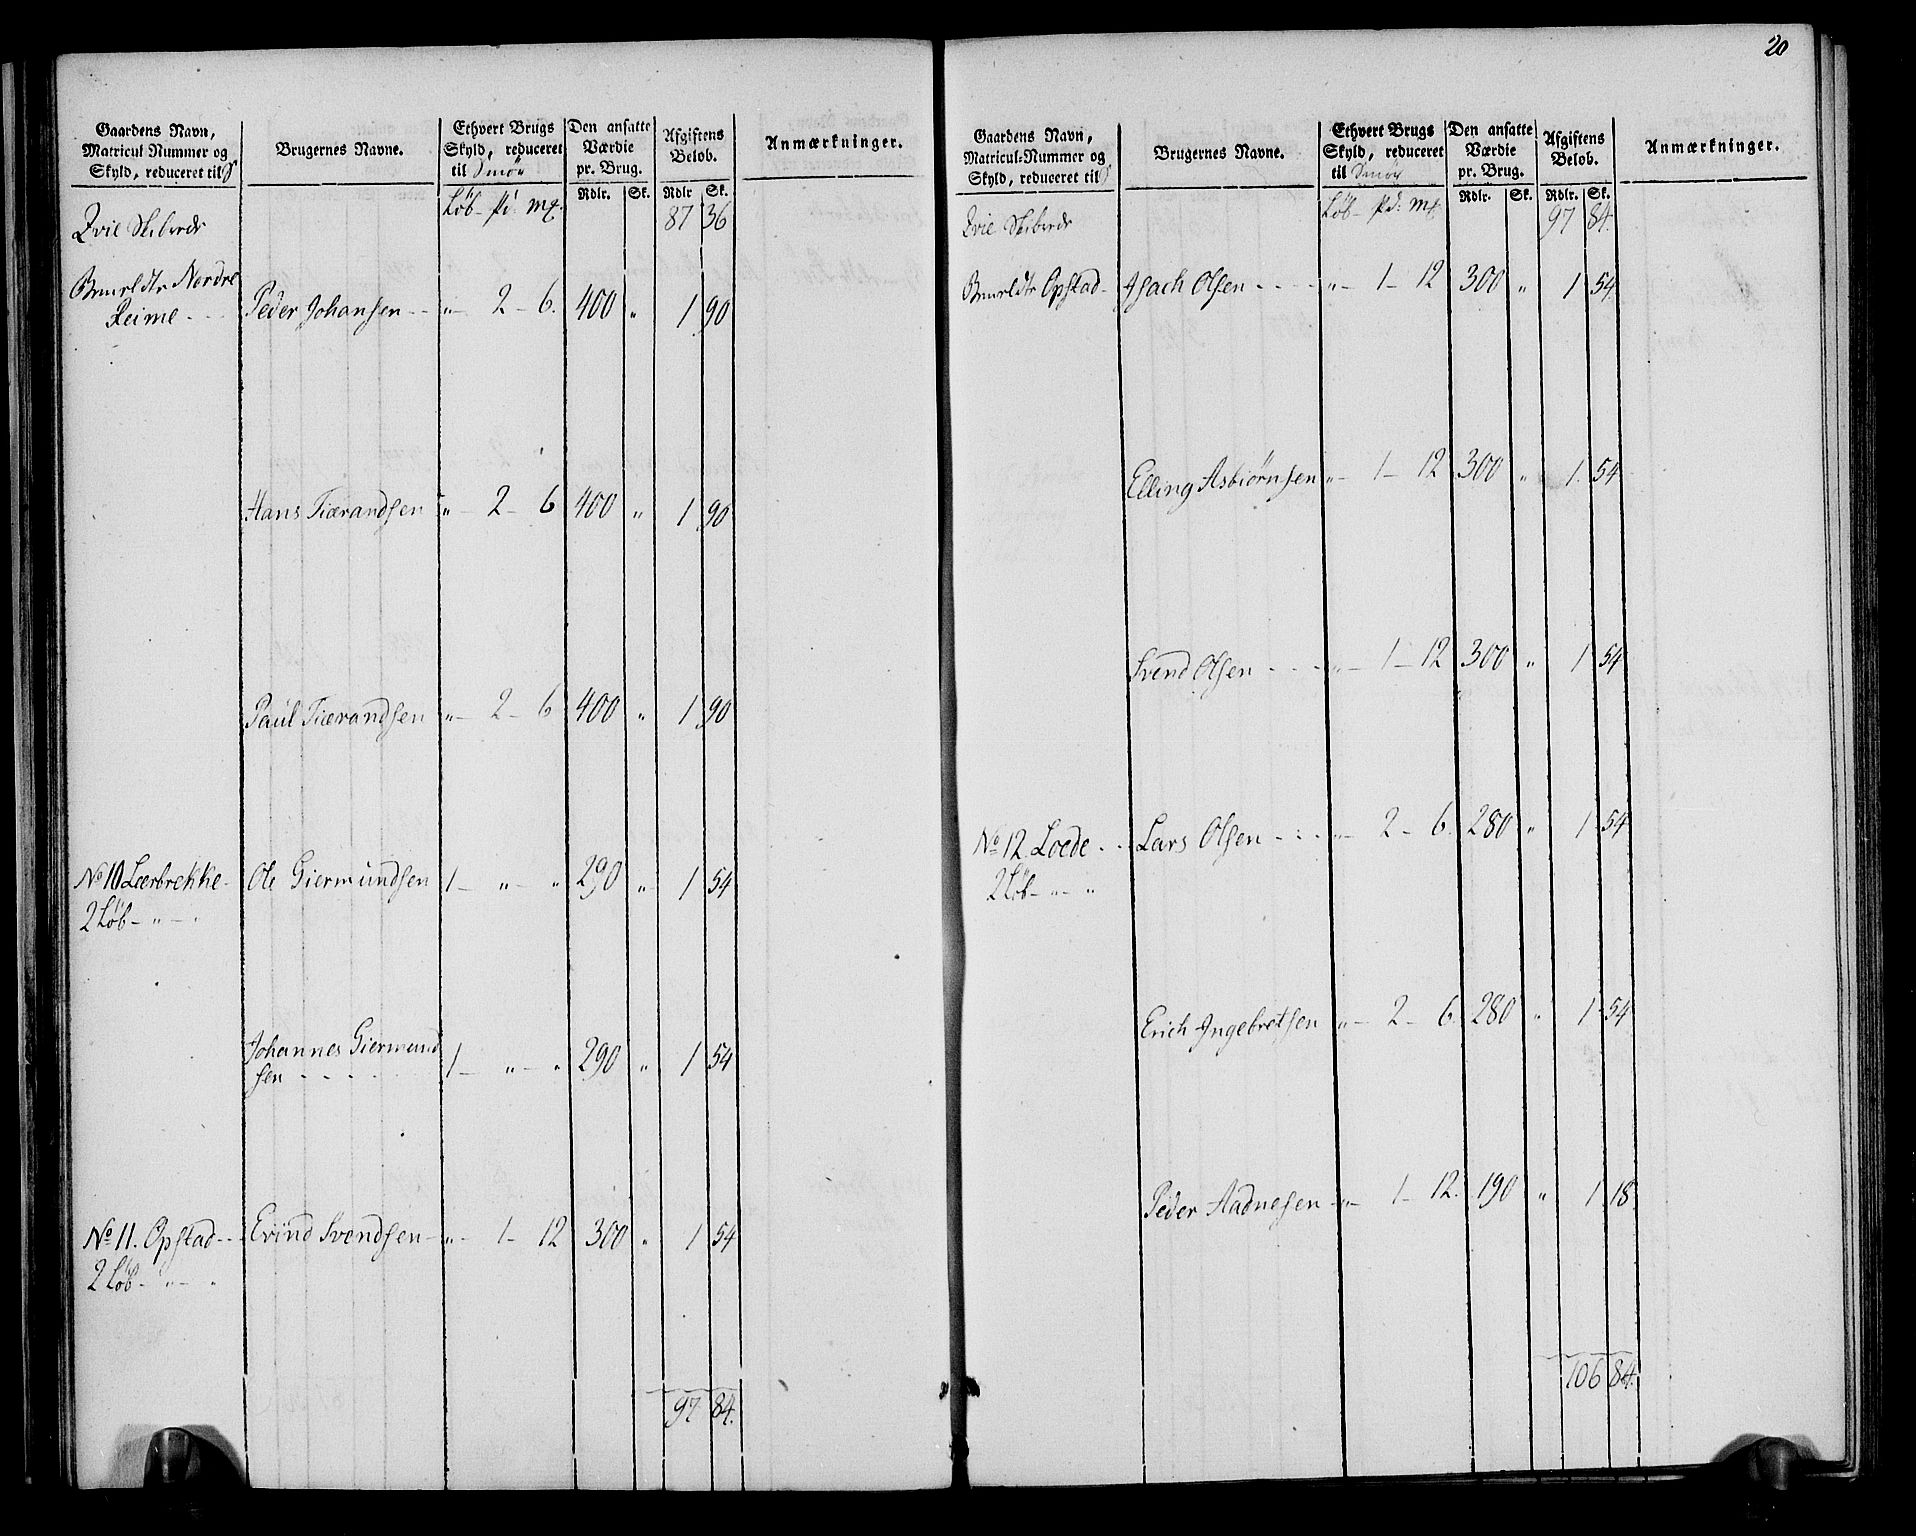 20
Gaardens Navn, Matricul Nummer og Skyld, reduceret til
Brugernes Navne.
Ethvert Brugs Skyld, reduceret til Smør
Den ansatte Værdie pr. Brug.
Afgiftens Beløb.
Anmærkninger.
Rdlr. Sk. Rdlr Sk.
Løb - pd: mk. 87 36
Qvie Skibrede
Nordre
Reime - - - Peder Johansen - - „ - 2 - 6. 400 „ 1 90
Hans Tiærandsen „ - 2 - 6 400 „ 1 90
Paul Tiærandsen „ - 2 - 6 400 „ 1 90
No 10 Leerbrekke - Ole Giermundsen 1 - „ - „ 290 „ 1 54
2 Løb - „ - „
Johannes Giermund
sen - - - - - 1 - „ - „ 290 „ 1 54
No 11. Opstad - - Erind Svendsen - „ - 1 - 12 300 „ 1 54
2 Løb - „ - „
97 84.
Gaardens Navn, Matricul-Nummer og Skyld, reduceret til
Brugernes Navne.
Ethvert Brugs Skyld, reduceret til Smør
Den ansatte Værdie pr. Brug.
Afgiftens Beløb.
Anmærkninger.
Rdlr. Sk. Rdlr. Sk.
Løb - pd: mk. 97 84.
Qvie Skibrede
Opstad - Isach Olsen - - - - „ - 1 - 12 300 „ 1 54
Elling Asbiørnsen „ - 1 - 12 300 „ 1. 54
Svend Olsen - - - - „ - 1 - 12 300 „ 1 54
No 12. Loede - - Lars Olsen - - - - „ - 2 - 6. 280 „ 1 54
2 Løb - „ - „
Erich Ingebretsen „ - 2 - 6. 280 „ 1 54
Peder Aadnesen - „ - 1 - 12. 190 „ 1 18
106 84.